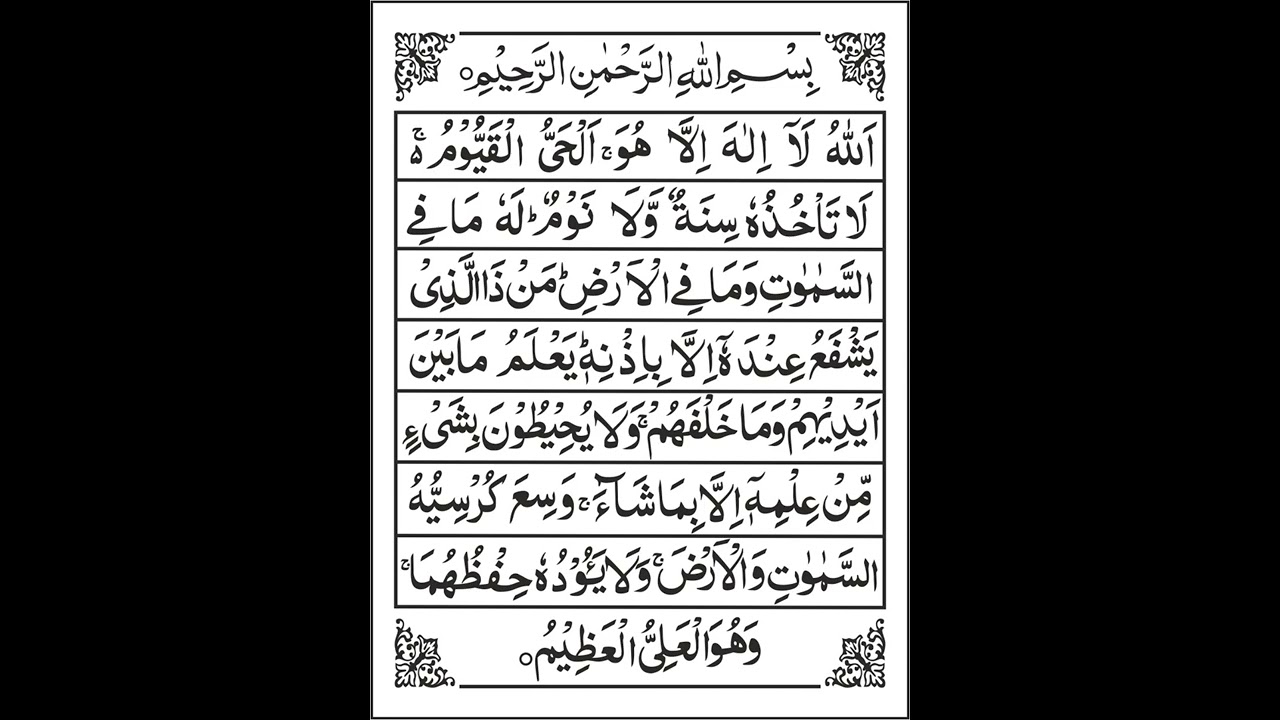 بِسْمِ اللّٰهِ الرَّحْمٰنِ الرَّحِيْمِ ○
اَللّٰهُ لَآ اِلٰهَ اِلَّا هُوَ ۚ اَلْحَیُّ الْقَيُّوْمُ ۚ۬
لَا تَاْخُذُهٗ سِنَةٌ وَّلَا نَوْمٌ ؕ لَهٗ مَا فِی
السَّمٰوٰتِ وَمَا فِی الْاَرْضِ ؕ مَنْ ذَا الَّذِیْ
يَشْفَعُ عِنْدَهٗۤ اِلَّا بِاِذْنِهٖ ؕ يَعْلَمُ مَا بَيْنَ
اَيْدِيْهِمْ وَمَا خَلْفَهُمْ ۚ وَلَا يُحِيْطُوْنَ بِشَیْءٍ
مِّنْ عِلْمِهٖۤ اِلَّا بِمَا شَآءَ ۚ وَسِعَ كُرْسِيُّهُ
السَّمٰوٰتِ وَالْاَرْضَ ۚ وَلَا يَـُٔوْدُهٗ حِفْظُهُمَا ۚ
وَهُوَ الْعَلِیُّ الْعَظِيْمُ ○